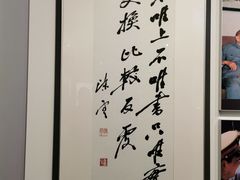 不唯上不唯書只唯實
交換比較反覆
陳雲